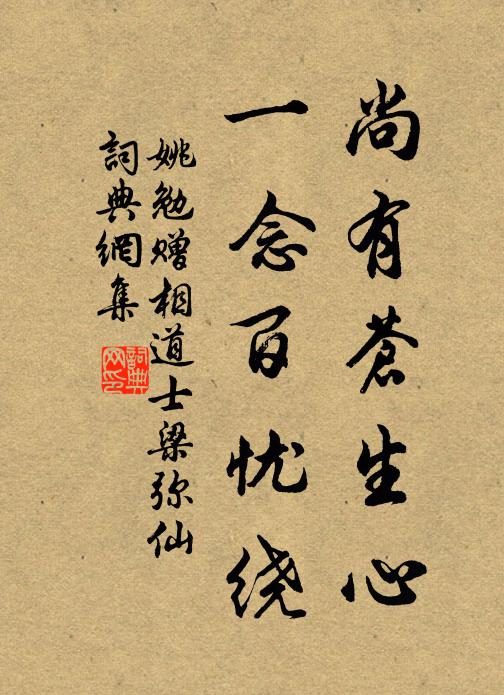 尚有蒼生心
一念百忧绕
姚勉赠相道士梁弥仙
詞典網集
詞典
网印